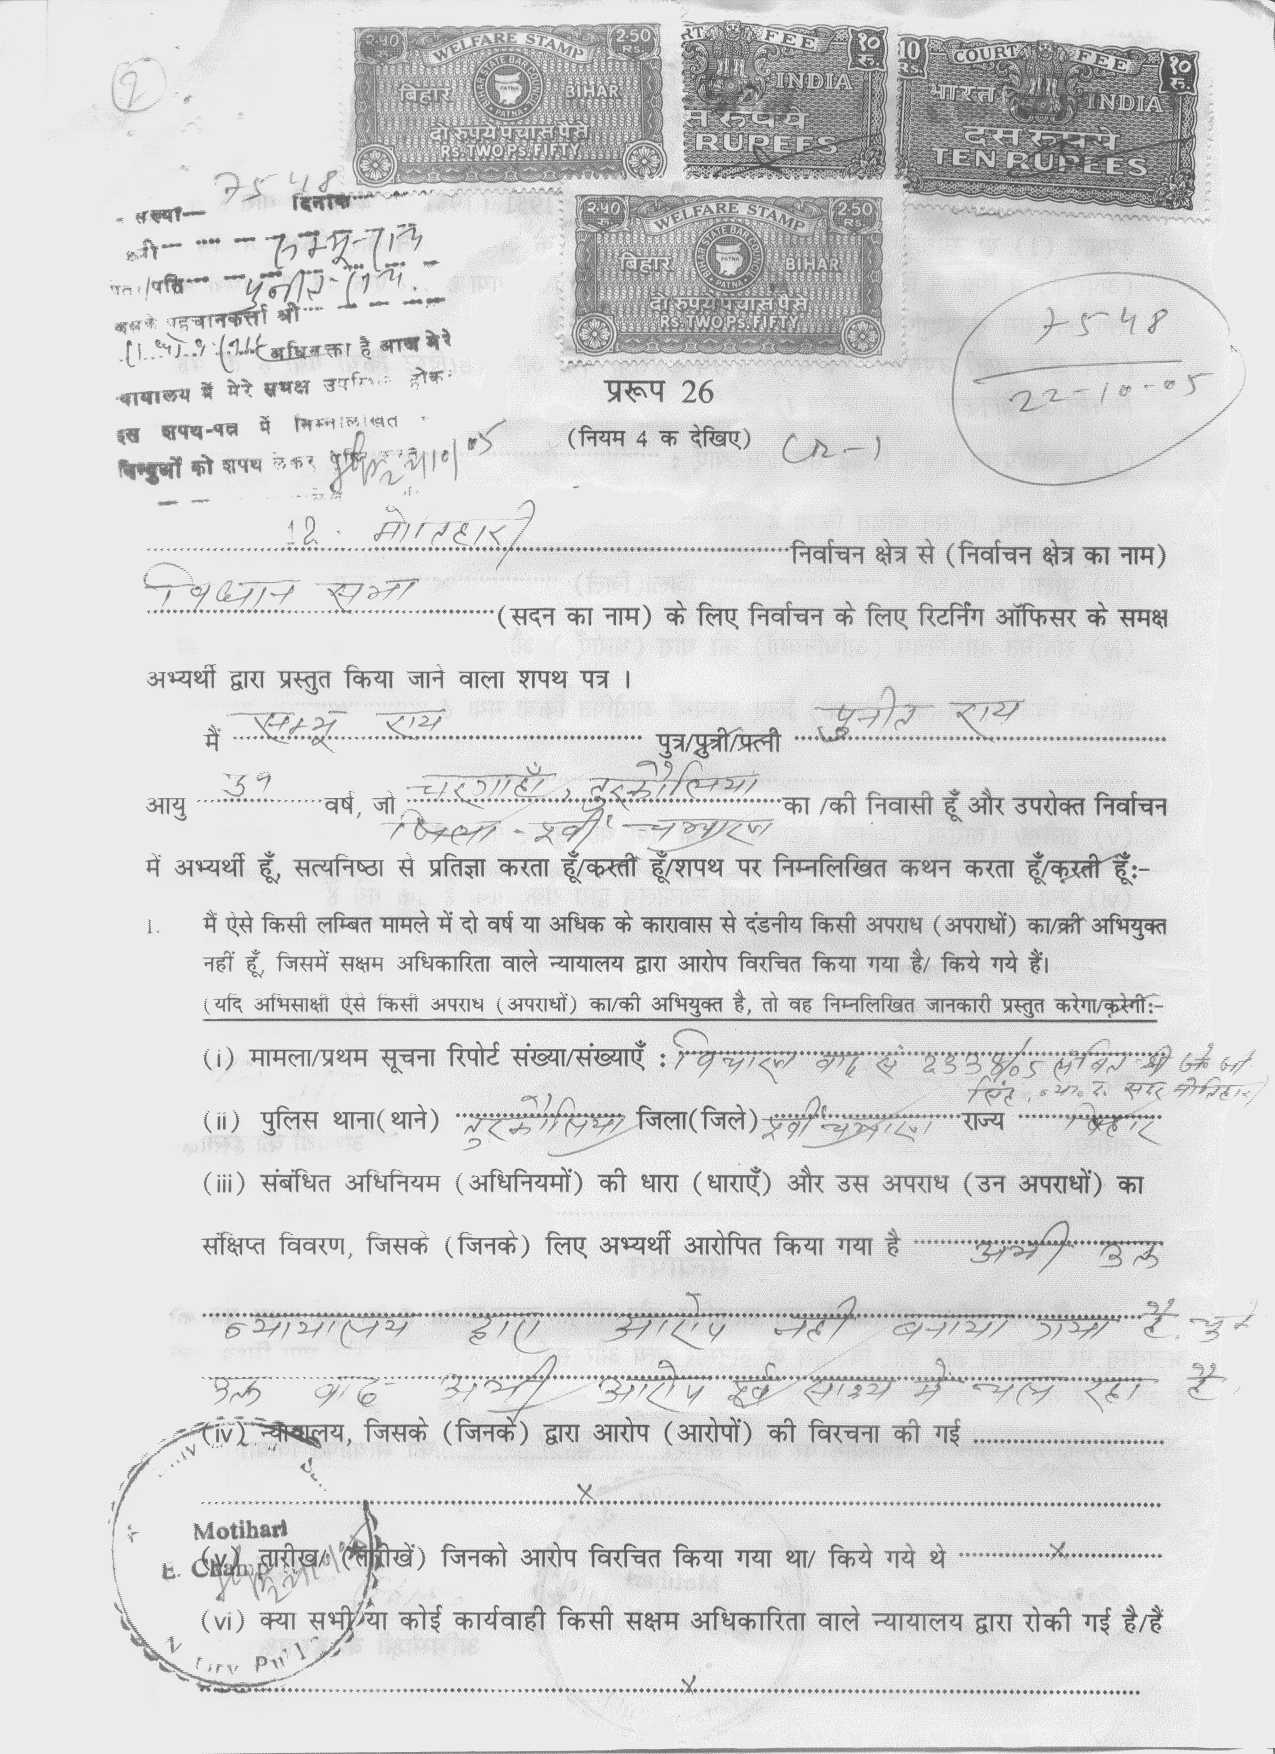 2
2.50 WELFARE STAMP 2.50 Rs.
BIHAR STATE BAR COUNCIL PATNA
बिहार BIHAR
दो रुपये पचास पैसे
RS. TWO PS. FIFTY
FEE १० रु.
INDIA
रुपये
RUPEES
10 Rs. COURT FEE १० रु.
भारत INDIA
दस रुपये
TEN RUPEES
2.50 WELFARE STAMP 2.50 Rs.
BIHAR STATE BAR COUNCIL PATNA
बिहार BIHAR
दो रुपये पचास पैसे
RS. TWO PS. FIFTY
संख्या— 7548 दिनांक
श्री
पिता/पति
पहचानकर्त्ता श्री
अधिवक्ता है आज मेरे
कार्यालय में मेरे समक्ष उपस्थित होकर
इस शपथ-पत्र में निम्नलिखित
बिन्दुओं को शपथ लेकर
7548
22-10-05
प्ररूप 26
(नियम 4 क देखिए)
12. मोतिहारी निर्वाचन क्षेत्र से (निर्वाचन क्षेत्र का नाम)
विधान सभा (सदन का नाम) के लिए निर्वाचन के लिए रिटर्निंग ऑफिसर के समक्ष
अभ्यर्थी द्वारा प्रस्तुत किया जाने वाला शपथ पत्र ।
मैं सम्भू राय पुत्र/पुत्री/पत्नी पुनीत राय
आयु वर्ष, जो चरगाहाँ, तुरकौलिया का /की निवासी हूँ और उपरोक्त निर्वाचन
जिला - पूर्वी चम्पारण
में अभ्यर्थी हूँ, सत्यनिष्ठा से प्रतिज्ञा करता हूँ/करती हूँ/शपथ पर निम्नलिखित कथन करता हूँ/करती हूँ:-
1. मैं ऐसे किसी लम्बित मामले में दो वर्ष या अधिक के कारावास से दंडनीय किसी अपराध (अपराधों) का/की अभियुक्त
नहीं हूँ, जिसमें सक्षम अधिकारिता वाले न्यायालय द्वारा आरोप विरचित किया गया है/ किये गये हैं।
(यदि अभिसाक्षी ऐसे किसी अपराध (अपराधों) का/की अभियुक्त है, तो वह निम्नलिखित जानकारी प्रस्तुत करेगा/करेगी:-
(i) मामला/प्रथम सूचना रिपोर्ट संख्या/संख्याएँ : विचारण वाद सं
सिंह सदर मोतिहारी
(ii) पुलिस थाना(थाने) तुरकौलिया जिला(जिले) पूर्वी चम्पारण राज्य बिहार
(iii) संबंधित अधिनियम (अधिनियमों) की धारा (धाराएँ) और उस अपराध (उन अपराधों) का
संक्षिप्त विवरण, जिसके (जिनके) लिए अभ्यर्थी आरोपित किया गया है अभी उक्त
न्यायालय द्वारा आरोप नही बनाया गया है.
उक्त वाद अभी आरोप पूर्व साक्ष्य में चल रहा है
(iv) न्यायालय, जिसके (जिनके) द्वारा आरोप (आरोपों) की विरचना की गई
x
(v) तारीख/ (तारीखें) जिनको आरोप विरचित किया गया था/ किये गये थे x
Motihari
E. Champ
(vi) क्या सभी या कोई कार्यवाही किसी सक्षम अधिकारिता वाले न्यायालय द्वारा रोकी गई है/हैं
x